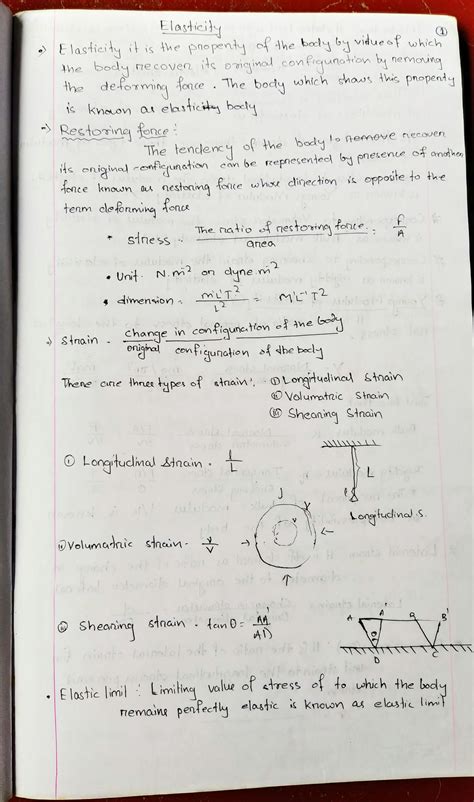 Elasticity
①
Elasticity it is the property of the body by virtue of which
the body recover its original configuration by removing
the deforming force. The body which shows this property
is known as elasticity body
Restoring force :
The tendency of the body to remove recover
its original configuration can be represented by presence of another
force known as restoring force whose direction is opposite to the
term deforming force
• stress - The ratio of restoring force / area = F/A
• Unit - N.m² or dyne.m²
• dimension = m'L'T⁻² / L² = M'L⁻'T⁻²
Strain - change in configuration of the body
original configuration of the body
There are three types of strain. ① Longitudinal Strain
② Volumatric Strain
③ Shearing Strain
① Longitudinal Strain - l/L
L
l
Longitudinal.S.
② Volumatric strain - v/V
③ Shearing strain - tanθ = AA'/AD
A A' B B'
θ
D C
• Elastic limit : Limiting value of stress of to which the body
remains perfectly elastic is known as elastic limit